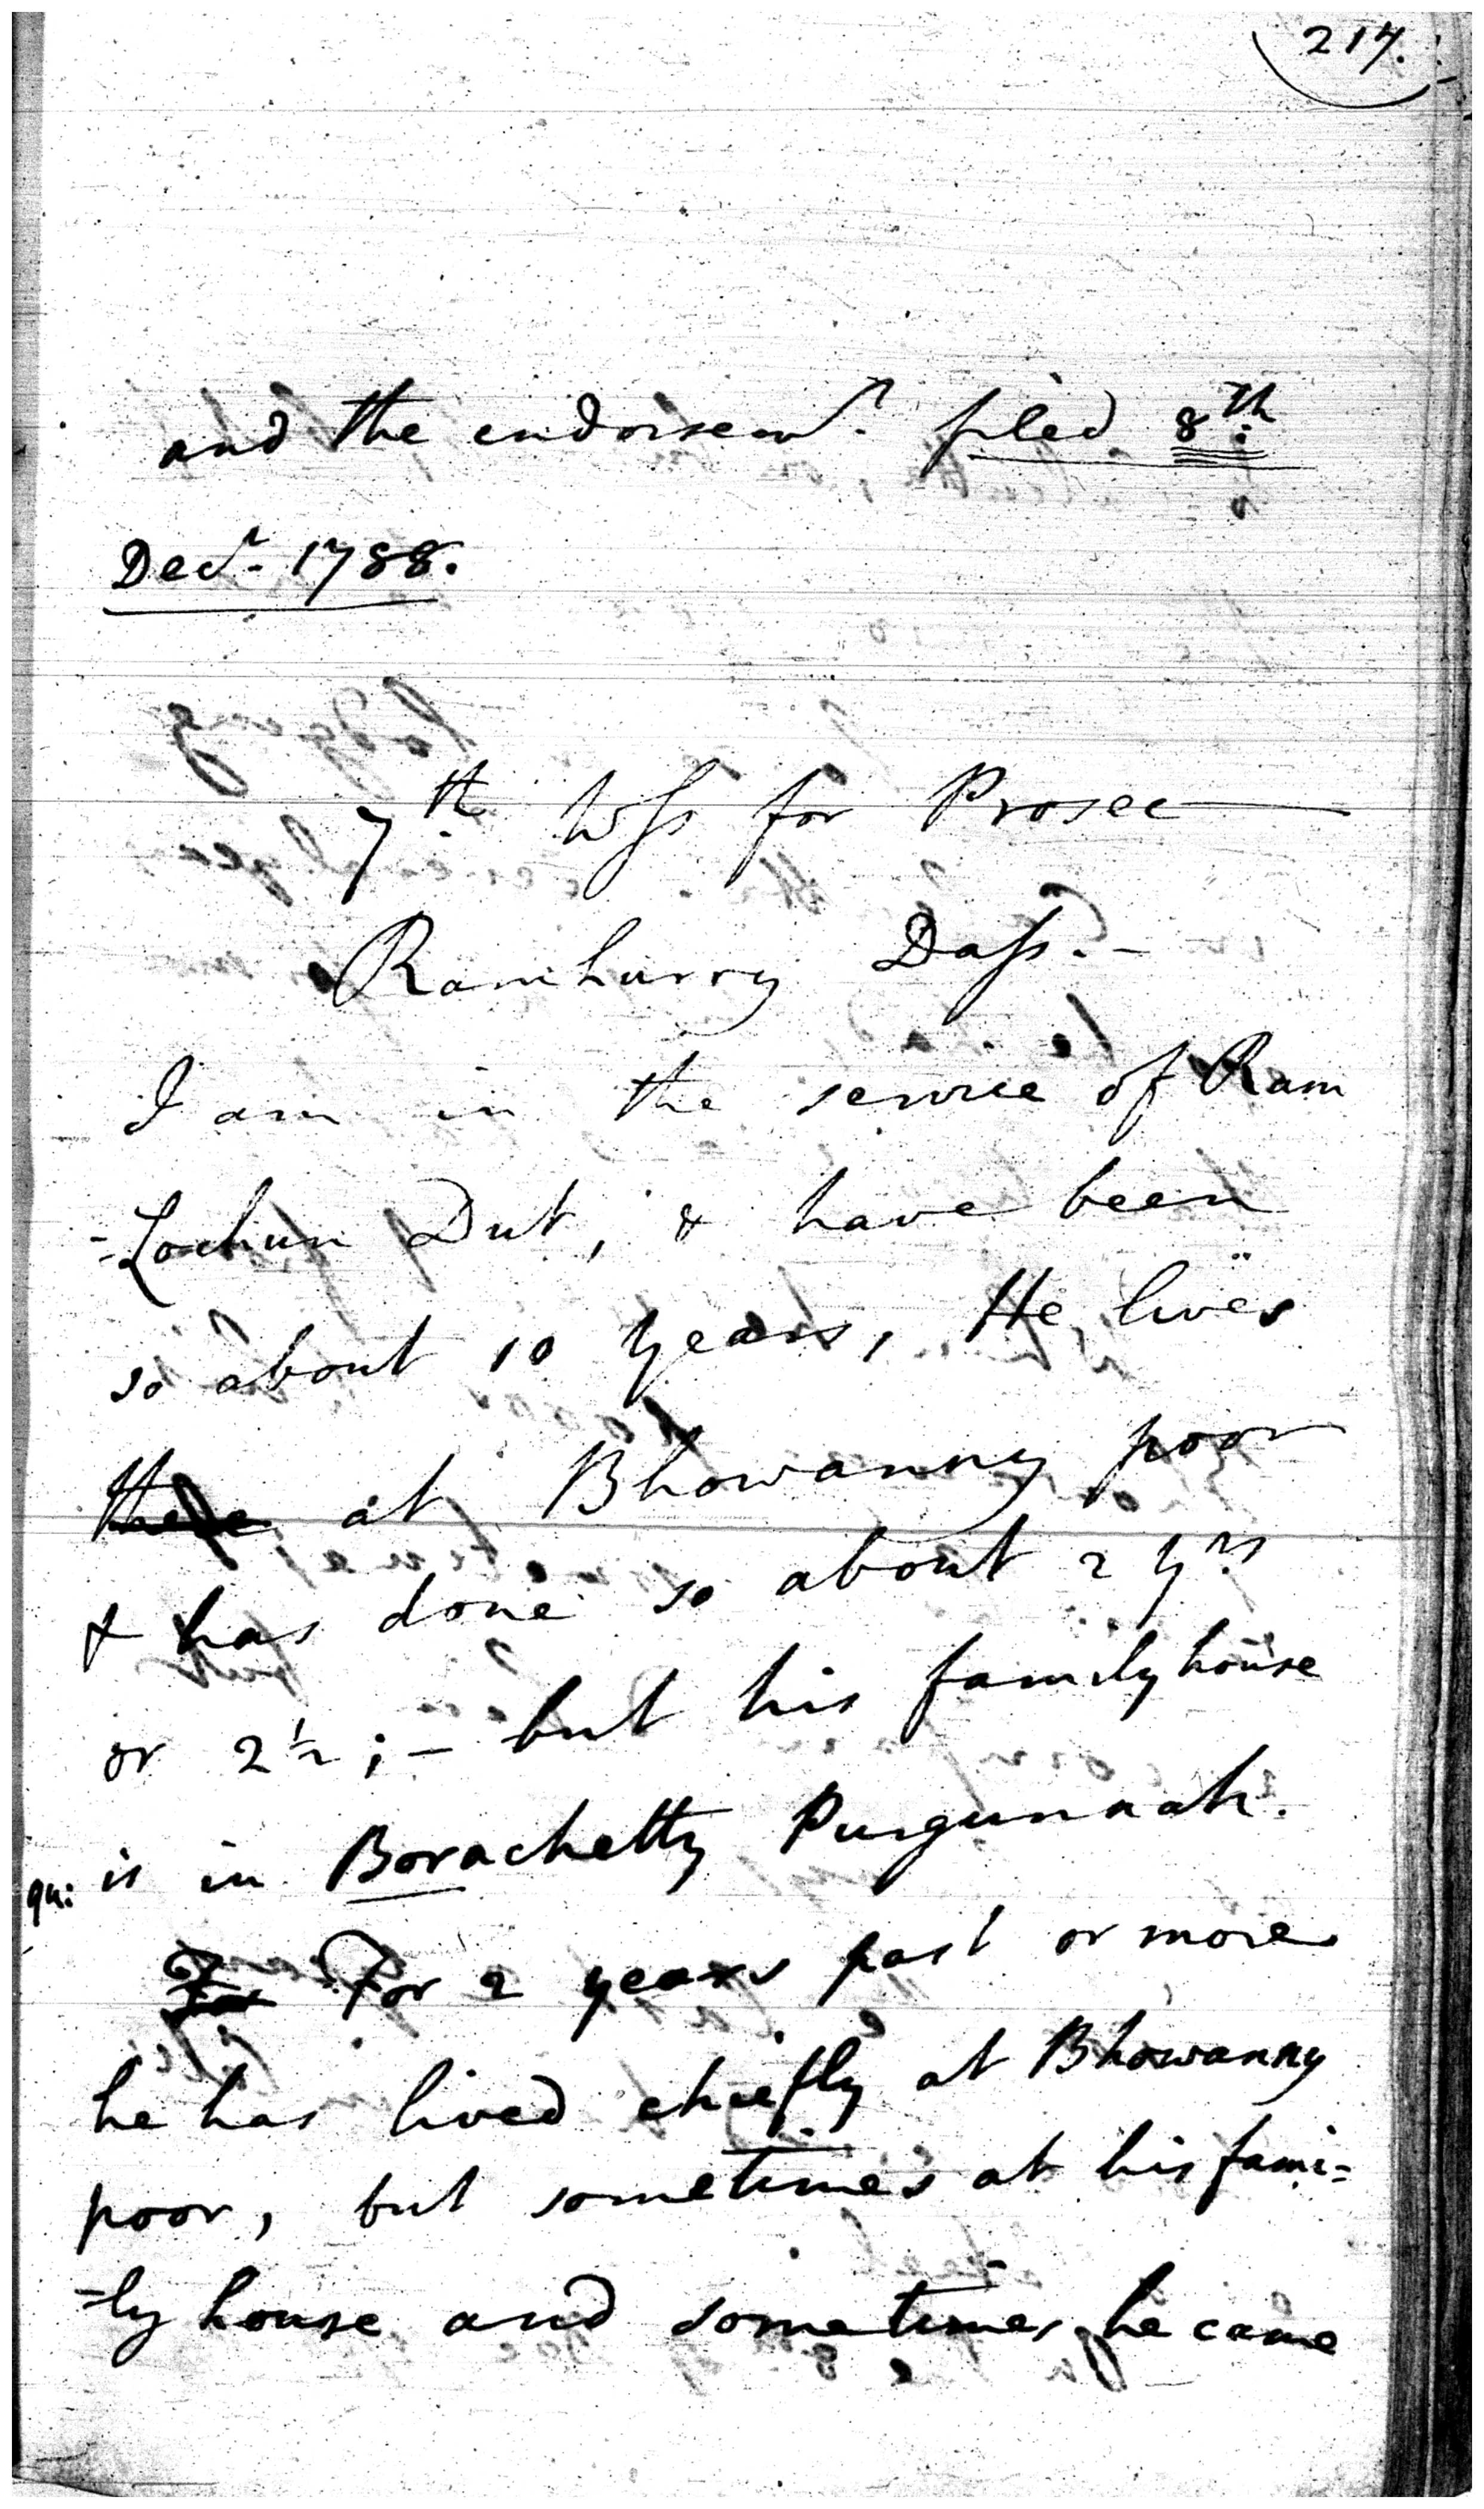 217.
and the endorsemt. filed 8th.
Decr. 1788.
7th Wss for Prosec
Ramhurry Dass.-
I am in the service of Ram
=Lochun Dut, & have been
so about 10 Years, He lives
there at Bhowanny poor
& has done so about 2 yrs
or 2½; - but his family house
is in Borachetty Purgunnah.
qu:
For For 2 years past or more
he has lived chiefly at Bhowanny
poor, but sometimes at his fami=
=ly house and sometimes he came